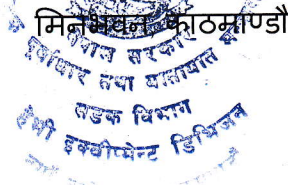 मिनभवन, काठमाण्डौ
नेपाल सरकार
पूर्वाधार तथा यातायात
सडक विभाग
हेभी इक्वीपमेन्ट डिभिजन